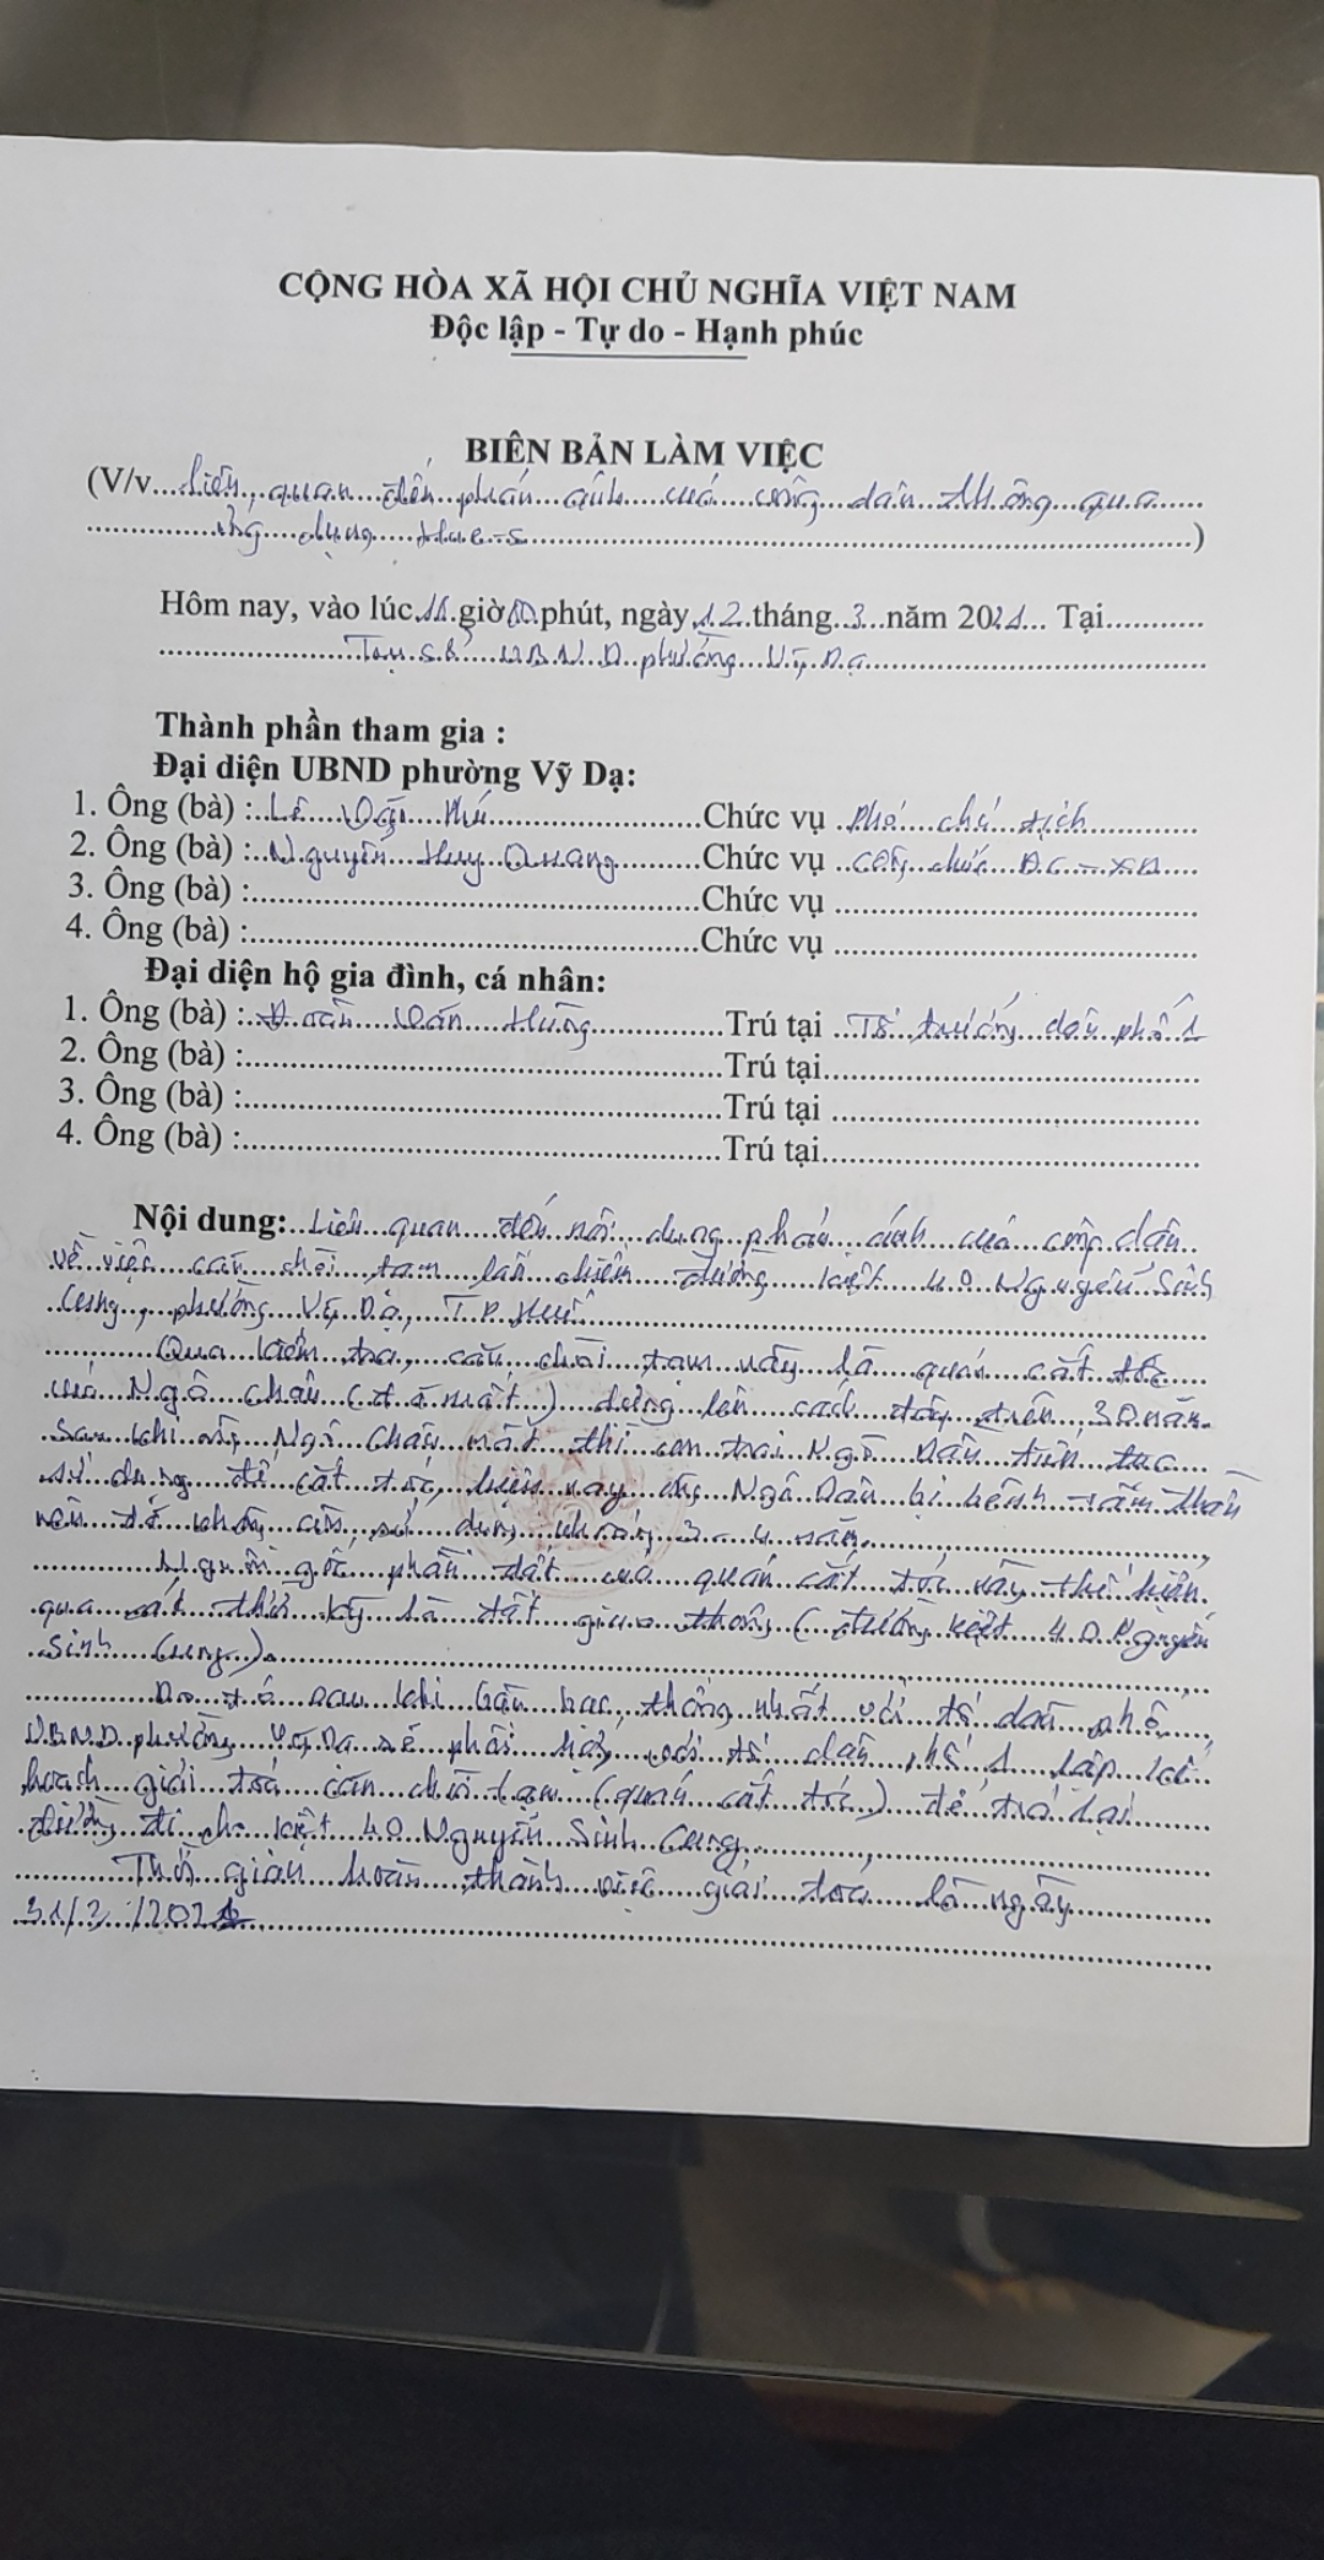 CỘNG HÒA XÃ HỘI CHỦ NGHĨA VIỆT NAM
Độc lập - Tự do - Hạnh phúc
BIÊN BẢN LÀM VIỆC
(V/v liên quan đến phản ánh của công dân thông qua
ứng dụng Hue-S)
Hôm nay, vào lúc giờ phút, ngày 12 tháng 3 năm 2021 Tại
Trụ sở UBND phường Vỹ Dạ
Thành phần tham gia :
Đại diện UBND phường Vỹ Dạ:
1. Ông (bà) : Lê Văn Chức vụ Phó chủ tịch
2. Ông (bà) : Nguyễn Huy Quang Chức vụ công chức ĐC-XD
3. Ông (bà) : Chức vụ
4. Ông (bà) : Chức vụ
Đại diện hộ gia đình, cá nhân:
1. Ông (bà) : Đoàn Văn Hùng Trú tại Tổ trưởng dân phố 1
2. Ông (bà) : Trú tại
3. Ông (bà) : Trú tại
4. Ông (bà) : Trú tại
Nội dung: Liên quan đến nội dung phản ánh của công dân
về việc căn chòi tạm lấn chiếm đường kiệt 40 Nguyễn Sinh
Cung, phường Vỹ Dạ, TP Huế
Qua kiểm tra, căn chòi tạm này là quán cắt tóc
của Ngô Châu (đã mất) dựng lên cách đây trên 30 năm
Sau khi ông Ngô Châu mất thì con trai Ngô Dân tiếp tục
sử dụng để cắt tóc, hiện nay ông Ngô Dân bị bệnh tâm thần
nên đã không còn sử dụng khoảng 3-4 năm.
Nguồn gốc phần đất của quán cắt tóc này thể hiện
qua các thời kỳ là đất giao thông (đường kiệt 40 Nguyễn
Sinh Cung).
Do đó sau khi bàn bạc, thống nhất với tổ dân phố,
UBND phường Vỹ Dạ sẽ phối hợp với tổ dân phố 1 lập kế
hoạch giải tỏa căn chòi tạm (quán cắt tóc) để trả lại
đường đi cho kiệt 40 Nguyễn Sinh Cung.
Thời gian hoàn thành việc giải tỏa là ngày
31/3/2021